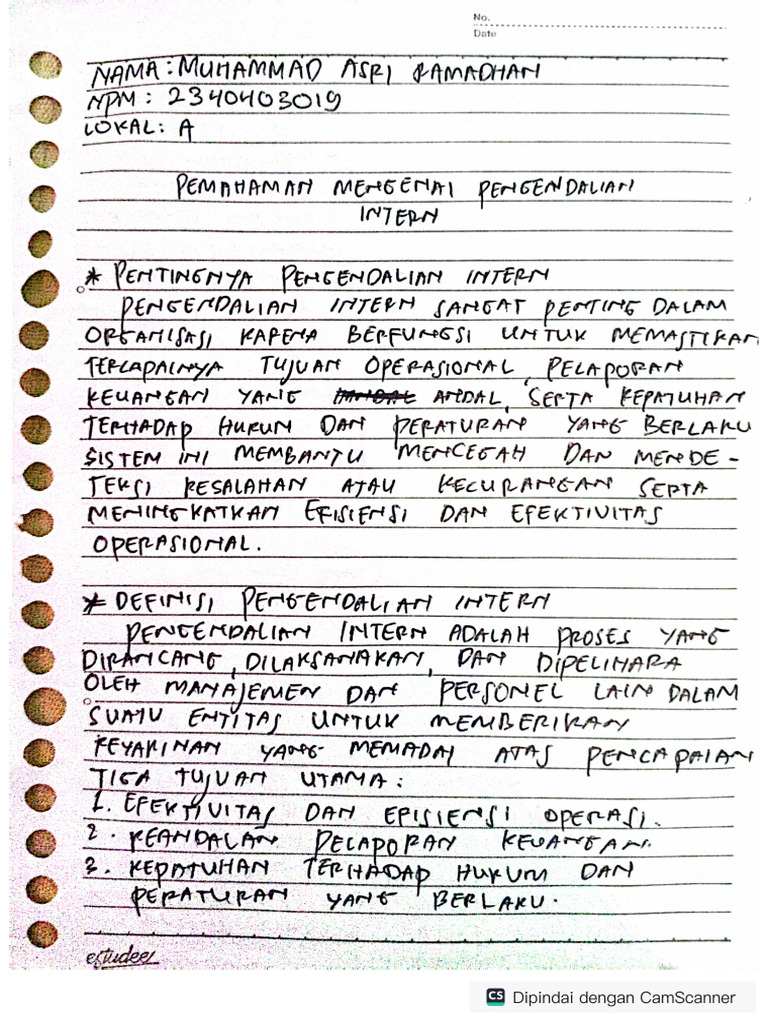 No.
Date
NAMA : MUHAMMAD ASRI RAMADHAN
NPM : 2340403019
LOKAL : A
PEMAHAMAN MENGENAI PENGENDALIAN
INTERN
* PENTINGNYA PENGENDALIAN INTERN
PENGENDALIAN INTERN SANGAT PENTING DALAM
ORGANISASI KARENA BERFUNGSI UNTUK MEMASTIKAN
TERCAPAINYA TUJUAN OPERASIONAL, PELAPORAN
KEUANGAN YANG ANDAL, SERTA KEPATUHAN
TERHADAP HUKUM DAN PERATURAN YANG BERLAKU
SISTEM INI MEMBANTU MENCEGAH DAN MENDE-
TEKSI KESALAHAN ATAU KECURANGAN SERTA
MENINGKATKAN EFISIENSI DAN EFEKTIVITAS
OPERASIONAL.
* DEFINISI PENGENDALIAN INTERN
PENGENDALIAN INTERN ADALAH PROSES YANG
DIRANCANG, DILAKSANAKAN, DAN DIPELIHARA
OLEH MANAJEMEN DAN PERSONEL LAIN DALAM
SUATU ENTITAS UNTUK MEMBERIKAN
KEYAKINAN YANG MEMADAI ATAS PENCAPAIAN
TIGA TUJUAN UTAMA :
1. EFEKTIVITAS DAN EFISIENSI OPERASI.
2. KEANDALAN PELAPORAN KEUANGAN.
3. KEPATUHAN TERHADAP HUKUM DAN
PERATURAN YANG BERLAKU.
estudee
CS Dipindai dengan CamScanner